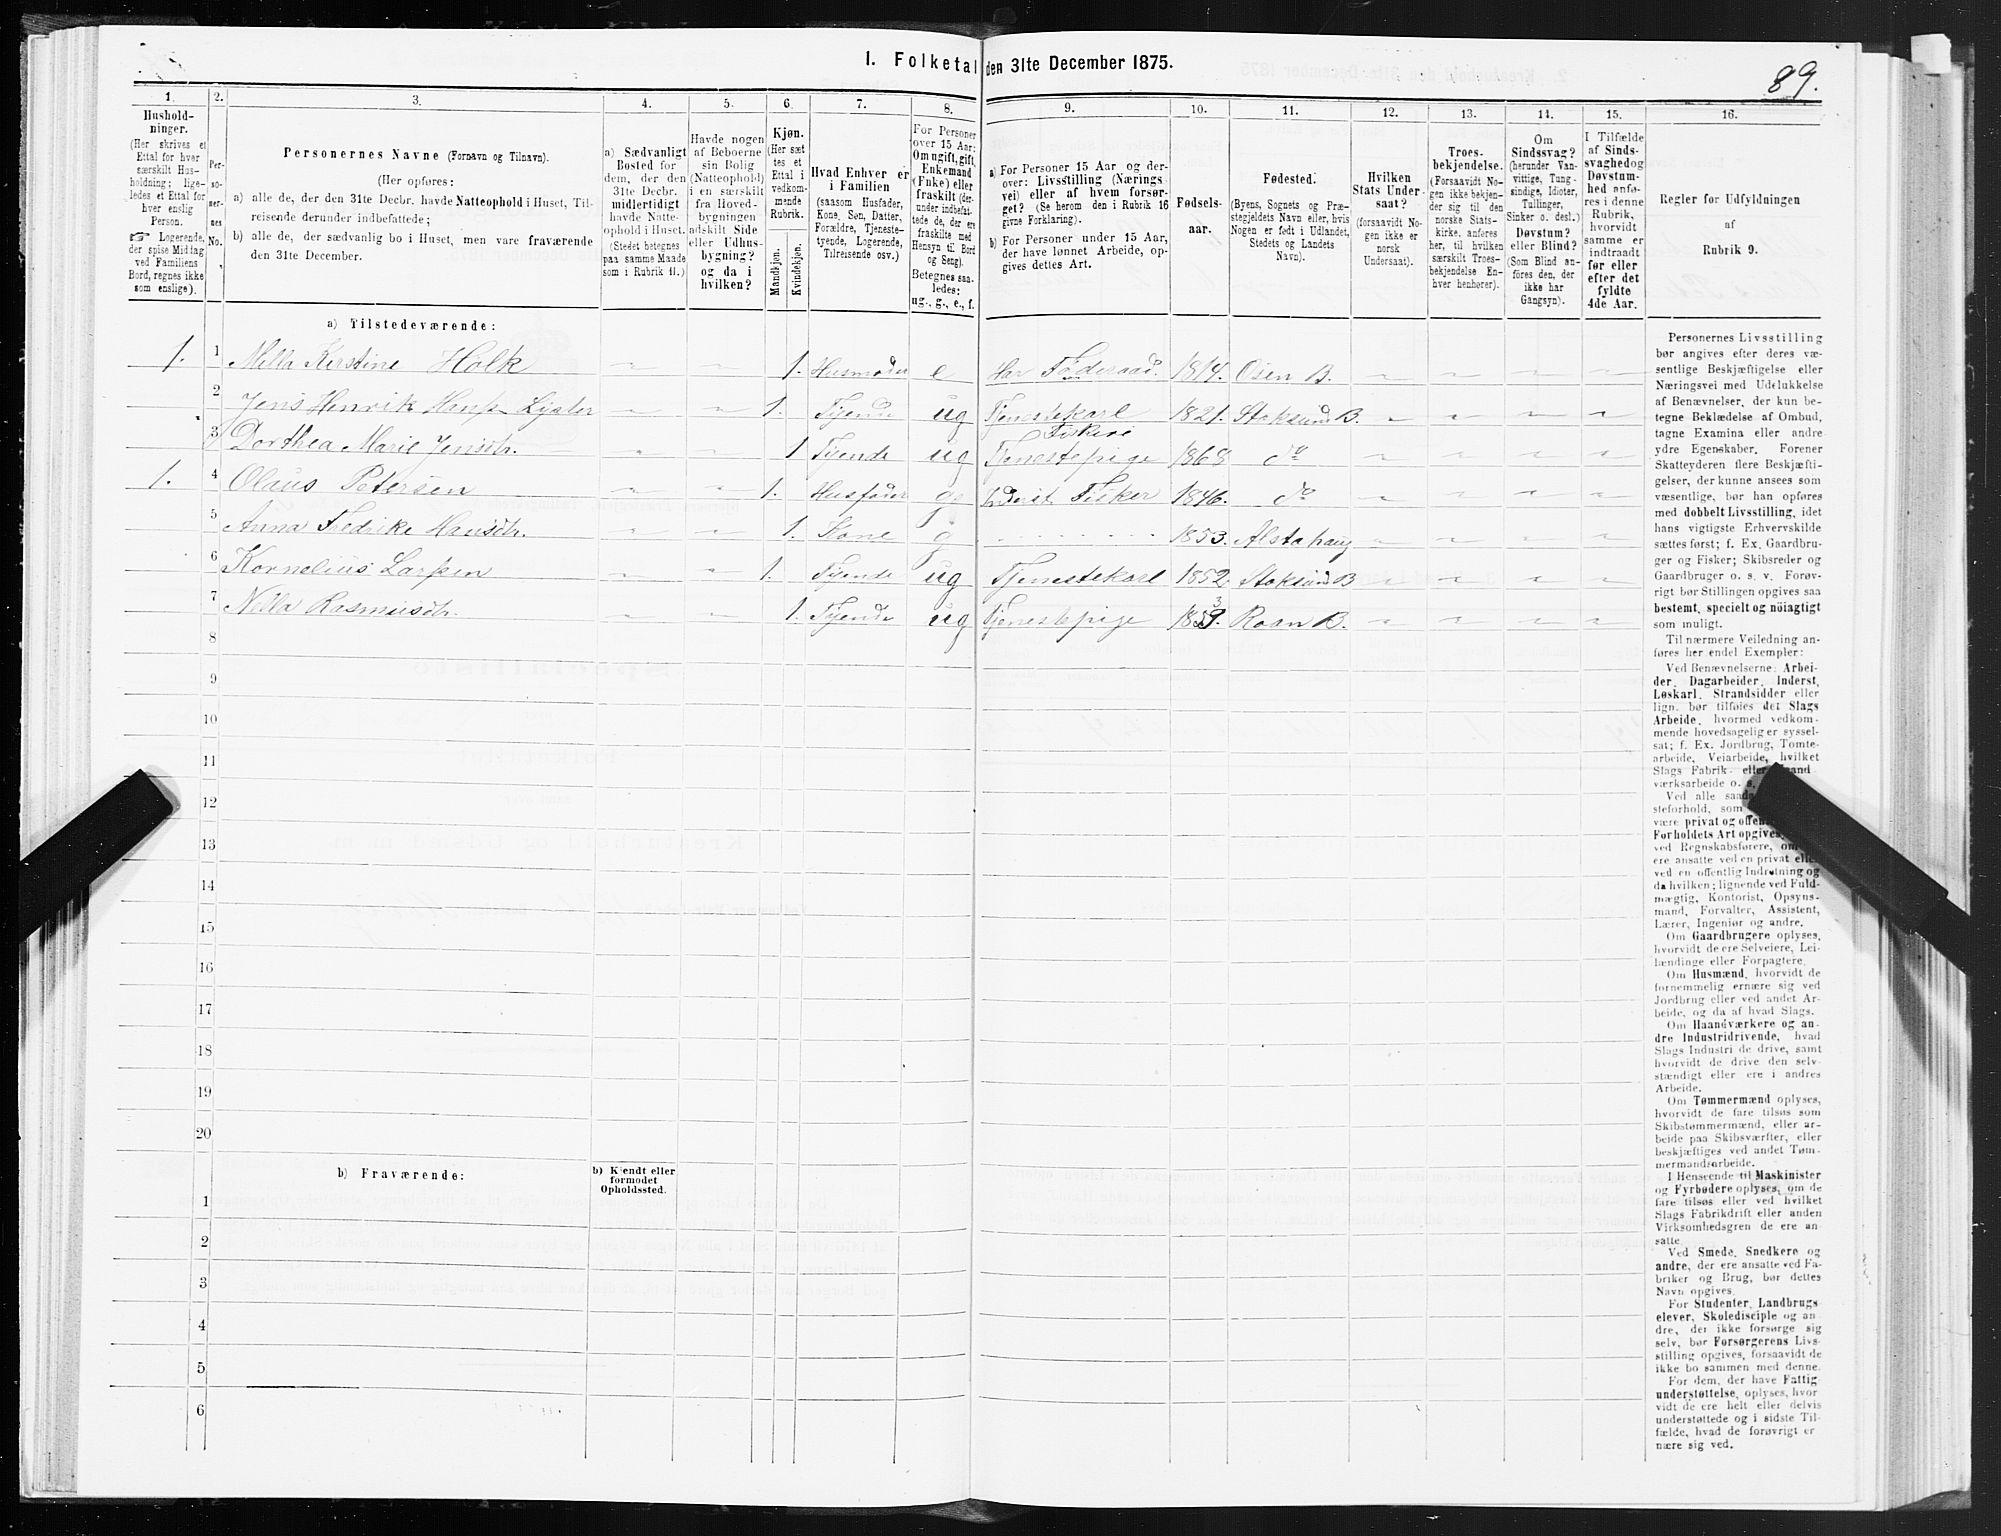 1. Folketal den 31te December 1875.
89.
1. 2. 3. 4. 5. 6. 7. 8. 9. 10. 11. 12. 13. 14. 15. 16.
Husholdninger. (Her skrives et Ettal for hver særskilt Husholdning; ligeledes et Ettal for hver enslig Person.
☞ Logerende, der spise Middag ved Familiens Bord, regnes ikke som enslige).
Personernes No.
Personernes Navne (Fornavn og Tilnavn).
(Her opføres:
a) alle de, der den 31te Decbr. havde Natteophold i Huset, Tilreisende derunder indbefattede;
b) alle de, der sædvanlig bo i Huset, men vare fraværende den 31te December.
a) Sædvanligt Bosted for dem, der den 31te Decbr. midlertidigt havde Natteophold i Huset. (Stedet betegnes paa samme Maade som i Rubrik 11.)
Havde nogen af Beboerne sin Bolig (Natteophold) i en særskilt fra Hovedbygningen adskilt Side eller Udhusbygning? og da i hvilken?
Kjøn. (Her sættes et Ettal i vedkommende Rubrik.
Mandkjøn. Kvindekjøn.
Hvad Enhver er i Familien (saasom Husfader, Kone, Søn, Datter, Forældre, Tjenestetyende, Logerende, Tilreisende osv.)
For Personer over 15 Aar: Om ugift, gift, Enkemand (Enke) eller fraskilt (derunder indbefattede de, der ere fraskilte med Hensyn til Bord og Seng). Betegnes saaledes: ug., g., e., f.
a) For Personer 15 Aar og derover: Livsstilling (Næringsvei) eller af hvem forsørget? (Se herom den i Rubrik 16 givne Forklaring).
b) For Personer under 15 Aar, der have lønnet Arbeide, opgives dettes Art.
Fødselsaar.
Fødested. (Byens, Sognets og Præstegjeldets Navn eller, hvis Nogen er født i Udlandet, Stedets og Landets Navn).
Hvilken Stats Undersaat? (forsaavidt Nogen ikke er norsk Undersaat).
Troesbekjendelse. (Forsaavidt Nogen ikke bekjender sig til den norske Statskirke, anføres her, til hvilken særskilt Troesbekjendelse Enhver henhører).
Om Sindssvag? (herunder Vanvittige, Tungsindige, Idioter, Tullinger, Sinker o. desl.) Døvstum? eller Blind? (Som Blind anføres den, der ikke har Gangsyn).
I Tilfælde af Sindssvaghed og Døvstumhed anføres i denne Rubrik, hvorvidt samme er indtraadt før eller efter det fyldte 4de Aar.
Regler for Udfyldningen af Rubrik 9.
a) Tilstedeværende:
1. 1 Mella Kirstine Holk 1. Husmoder e Har Føderaad. 1814. Osen B.
2 Jens Henrik Hansen Lyster 1. Tyende ug Tjenestekarl Fiskeri 1821. Stoksund B.
3 Dorthea Marie Jensdtr. 1 Tyende ug Tjenestepige 1868 do
1. 4 Olaus Petersen 1. Husfader g Inderst Fisker 1846. do
5 Anna Fredrike Hansdtr. 1. Kone g 1853. Alstahaug
6 Kornelius Larsen 1. Tyende ug Tjenestekarl 1852. Stoksund B
7 Nella Rasmusdtr. 1. Tyende ug Tjenestepige Roan B.
8
9
10
11
12
13
14
15
16
17
18
19
20
b) Fraværende:
b) Kjendt eller formodet Opholdssted.
1
2
3
4
5
6
Personernes Livsstilling bør angives efter deres væsentlige Beskjæftigelse eller Næringsvei med Udelukkelse af Benævnelser, der kun betegne Beklædelse af Ombud, tagne Examina eller andre ydre Egenskaber. Forener Skatteyderen flere Beskjæftigelser, der kunne ansees som væsentlige, bør han opføres med dobbelt Livsstilling, idet hans vigtigste Erhvervskilde sættes først; f. Ex. Gaardbruger og Fisker; Skibsreder og Gaardbruger o. s. v. Forøvrigt bør Stillingen opgives saa bestemt, specielt og nöiagtigt som muligt.
Til nærmere Veiledning anføres her endel Exempler:
Ved Benævnelserne: Arbeider, Dagarbeider, Inderst, Løskarl, Strandsidder eller lign. bør tilføies det Slags Arbeide, hvormed vedkommende hovedsagelig er sysselsat; f. Ex. Jordbrug, Tomtearbeide, Veiarbeide, hvilket Slags Fabrik- eller Haandværksarbeide o. s.
Ved alle
være privat og
Forholdets Art opgives,
ved Regnskabsførere,
ere ansatte ved en privat eller
ved en offentlig Indretning og
da hvilken; lignende ved Fuldmægtig, Kontorist, Opsynsmand, Forvalter, Assistent, Lærer, Ingeniør og andre.
Om Gaardbrugere oplyses, hvorvidt de ere Selveiere, Leilændinge eller Forpagtere.
Om Husmænd, hvorvidt de fornemmelig ernære sig ved Jordbrug eller ved andet Arbeide, og da af hvad Slags.
Om Haandværkere og andre Industridrivende, hvad Slags Industri de drive, samt hvorvidt de drive den selvstændigt eller ere i andres Arbeide.
Om Tømmermænd oplyses, hvorvidt de fare tilsøs som Skibstømmermænd, eller arbeide paa Skibsværfter, eller beskjæftiges ved andet Tømmermandsarbeide.
I Henseende til Maskinister og Fyrbødere oplyses, om de fare tilsøs eller ved hvilket Slags Fabrikdrift eller anden Virksomhedsgren de ere ansatte.
Ved Smede, Snedkere og andre, der ere ansatte ved Fabriker og Brug, bør dettes Navn opgives.
For Studenter, Landbrugselever, Skoledisciple og andre, der ikke forsørge sig selv, bør Forsørgerens Livsstilling opgives, forsaavidt de ikke bo sammen med denne.
For dem, der have Fattigunderstøttelse, oplyses, hvorvidt de ere helt eller delvis understøttede og i sidste Tilfælde, hvad de forøvrigt ernære sig ved.